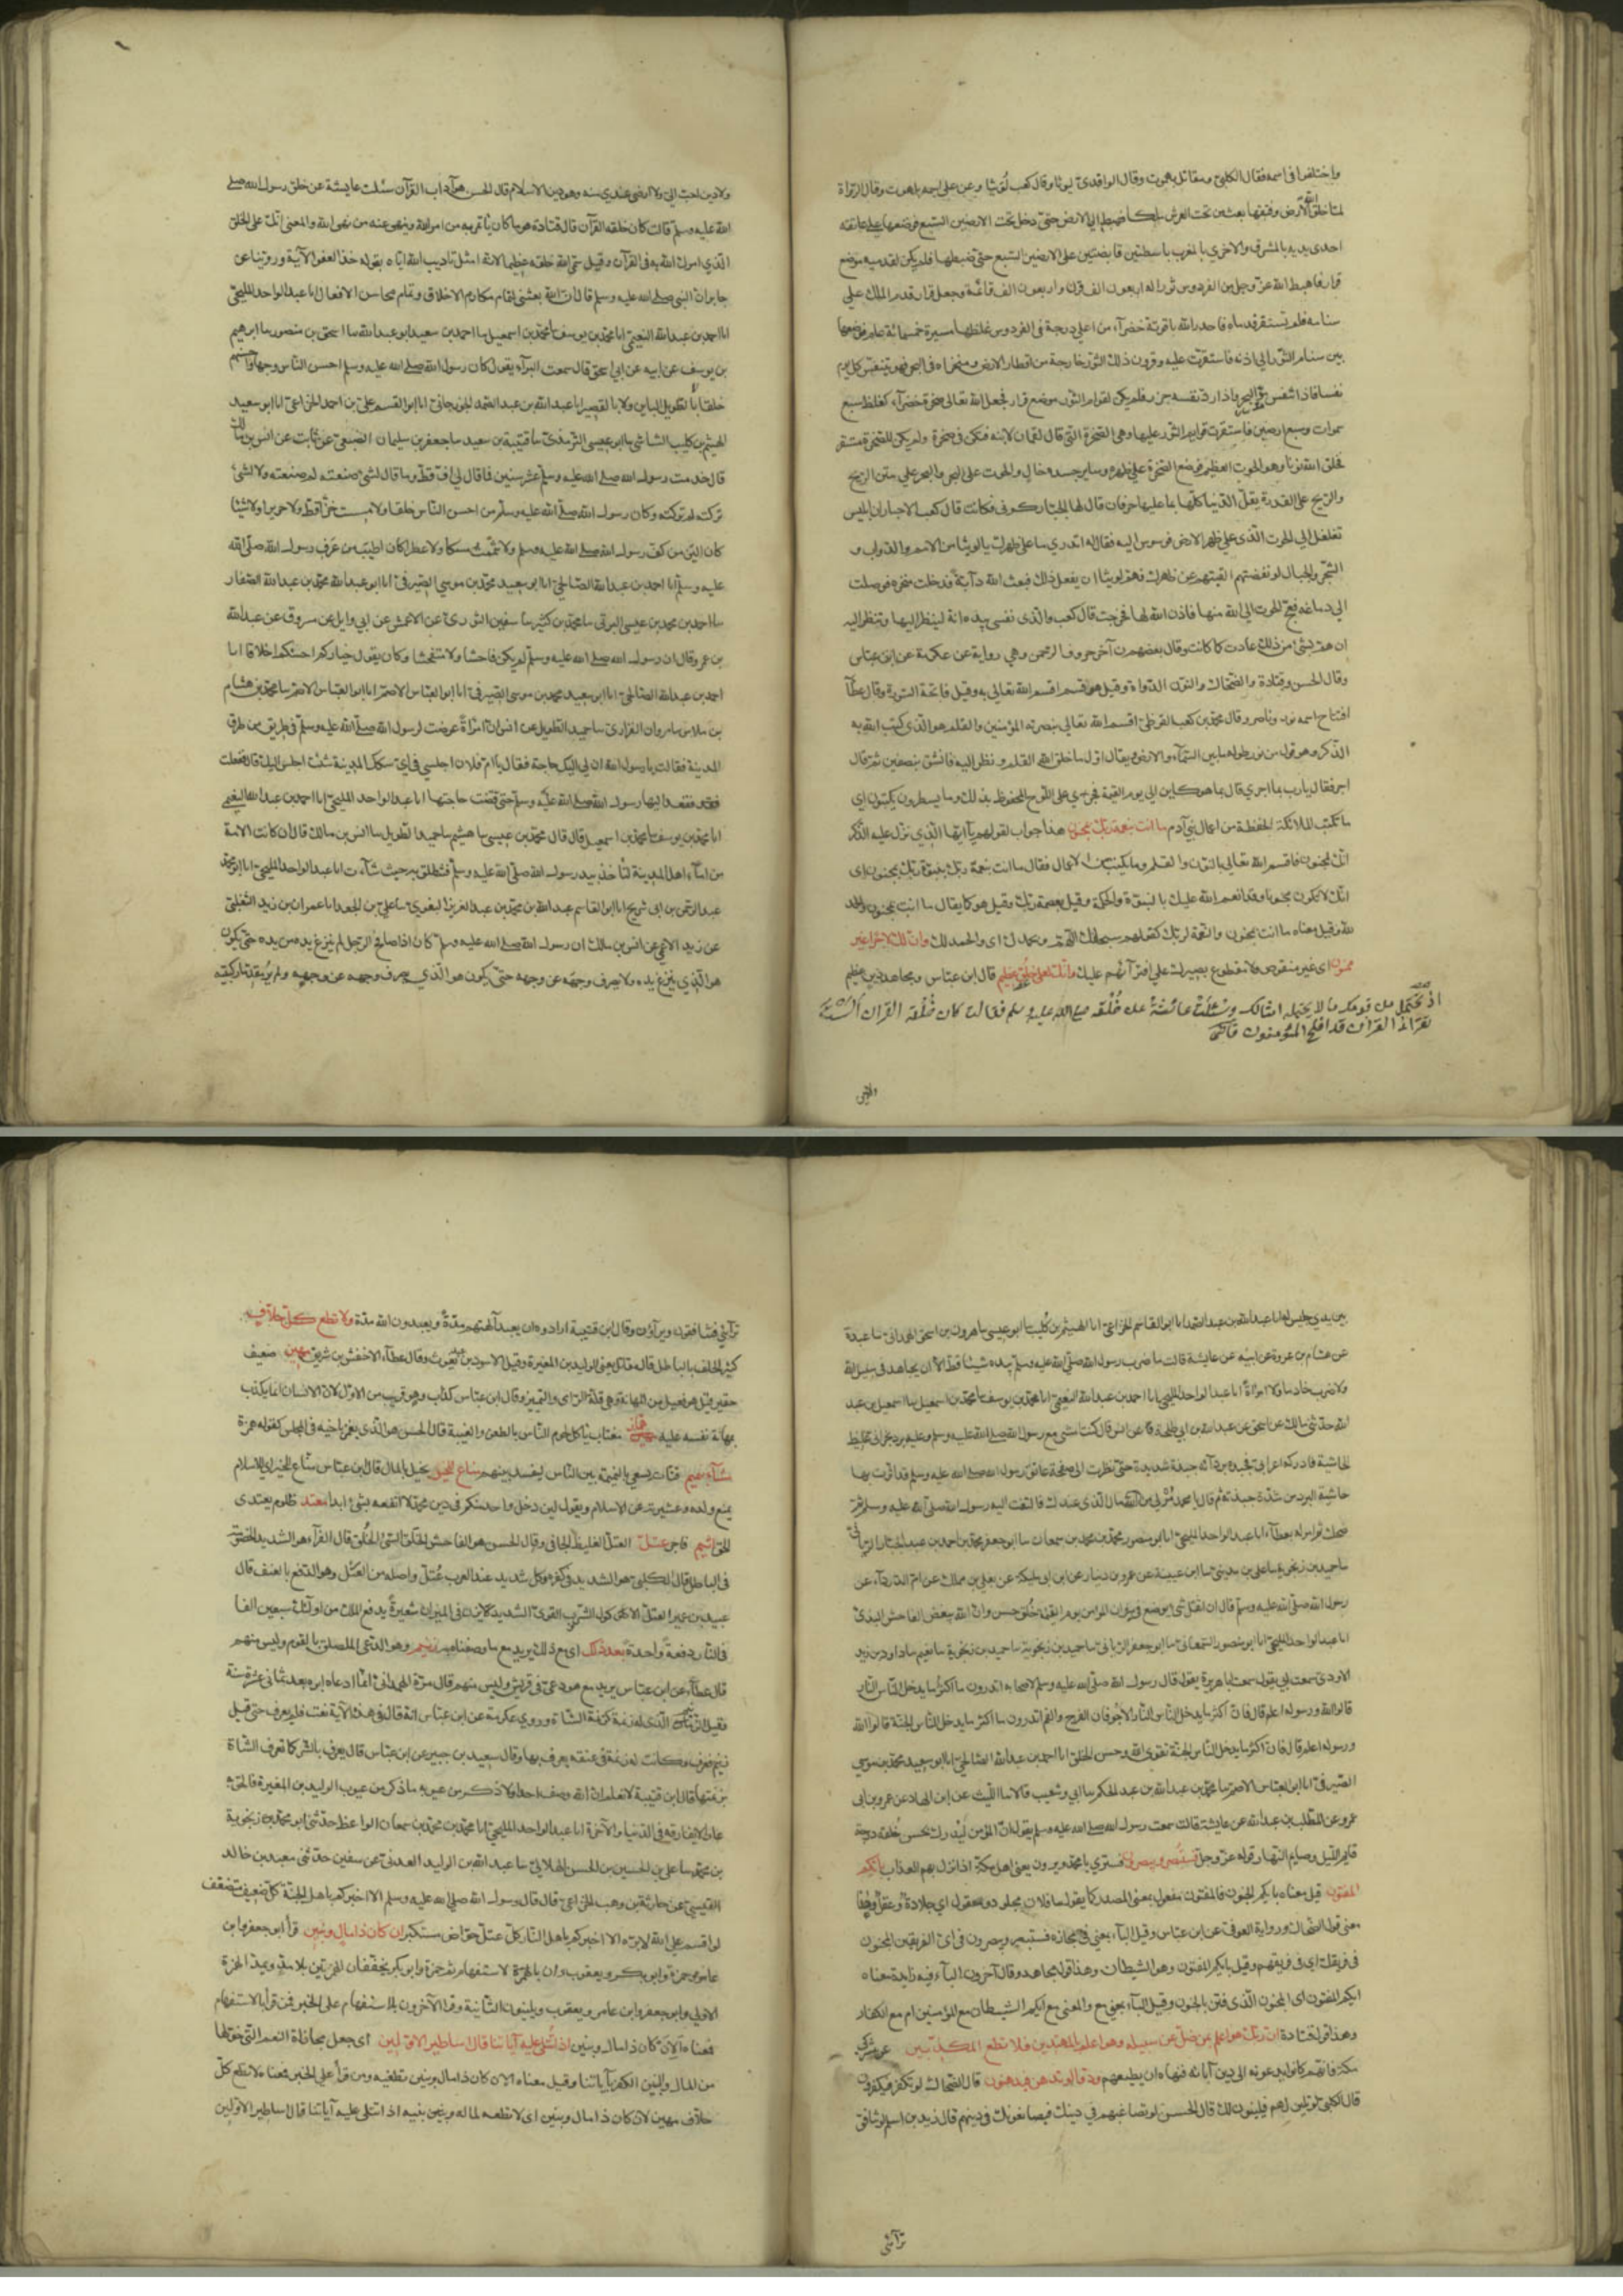 واختلفوا في اسمه فقال الكلبي ومقاتل بهموت وقال الواقدي ليوثا وقال كعب لوثيا وعن علي اسمه بلهوت وقال الرواة
لما خلق الله الارض وفتقها بعث من تحت العرش ملكا فهبط الى الارض حتى دخل تحت الارضين السبع فوضعها على عاتقه
احدى يديه بالمشرق والاخرى بالمغرب باسطتين قابضتين على الارضين السبع حتى ضبطها فلم يكن لقدميه موضع
قرار فاهبط الله عز وجل من الفردوس ثورا له اربعون الف قرن واربعون الف قائمة وجعل قرار قدم الملك على
سنامه فلم تستقر قدماه فاحدر الله ياقوتة خضرآء من اعلى درجة في الفردوس غلظها مسيرة خمسمائة عام فوضعها
بين سنام الثور الى اذنه فاستقرت عليه وقرون ذلك الثور خارجة من اقطار الارض ومنخراه في البحر فهو يتنفس كل يوم
نفسا فاذا تنفس مد البحر واذا رد نفسه جزر فلم يكن لقوائم الثور موضع قرار فجعل الله تعالى صخرة خضرآء كغلظ سبع
سموات وسبع ارضين فاستقرت قوايم الثور عليها وهي الصخرة التي قال لقمان لابنه فتكن في صخرة ولم يكن للصخرة مستقر
فخلق الله نونا وهو الحوت العظيم فوضع الصخرة على ظهره وساير جسده خال والحوت على البحر والبحر على متن الريح
والريح على القدرة يقل الدنيا كلها بما عليها حرفان قال لها الجبار كوني فكانت قال كعب الاحبار ان ابليس
تغلغل الى الحوت الذي على ظهر الارض فوسوس اليه فقال له اتدري ما على ظهرك يا لويثا من الامم والدواب و
الشجر والجبال لو نفضتهم القيتهم عن ظهرك فهم لويثا ان يفعل ذلك فبعث الله دآبة فدخلت منخره فوصلت
الى دماغه فعج الحوت الى الله منها فاذن الله لها فخرجت قال كعب والذي نفسي بيده انه لينظر اليها وتنظر اليه
ان هم بشئ من ذلك عادت كما كانت وقال بعضهم ن آخر حروف الرحمن وهي رواية عن عكرمة عن ابن عباس
وقال الحسن وقتادة والضحاك والنون الدواة وقيل هو قسم اقسم الله تعالى به وقيل فاتحة السورة وقال عطآ
افتتاح اسمه نور وناصر وقال محمد بن كعب القرظي اقسم الله تعالى بنصرته المؤمنين والقلم هو الذي كتب الله به
الذكر وهو قلم من نور طوله ما بين السمآء والارض ويقال اول ما خلق الله القلم ونظر اليه فانشق بنصفين ثم قال
اجر فقال يارب بما اجري قال بما هو كاين الى يوم القيمة فجرى على اللوح المحفوظ بذلك وما يسطرون يكتبون اى
ما تكتب الملائكة الحفظة من اعمال بني آدم ما انت بنعمة ربك بمجنون هذا جواب لقولهم يآ ايها الذي نزل عليه الذكر
انك لمجنون فاقسم الله تعالى بالنون والقلم وما يكتب من الاعمال فقال ما انت بنعمة ربك بنبوة ربك بمجنون اى
انك لا تكون مجنونا وقد انعم الله عليك بالنبوة والحكمة وقيل بعصمة ربك وقيل هو كما يقال ما انت بمجنون والحمد
لله وقيل معناه ما انت بمجنون والنعمة لربك كقولهم سبحانك اللهم وبحمدك اى والحمد لك وان لك لاجرا غير
ممنون اى غير منقوص ولا مقطوع بصبرك على افترآئهم عليك وانك لعلى خلق عظيم قال ابن عباس ومجاهد دين عظيم
اذ تحتمل من قومك ما لا يحتمله امثالك وسئلت عائشة عن خلقه صلى الله عليه وسلم فقالت كان خلقه القرآن الست
تقرأ القرآن قد افلح المؤمنون
ولا دين
ولا دين احب الي ولا ارضى عندي منه وهو دين الاسلام قال الحسن هو آداب القرآن سئلت عايشة عن خلق رسول الله صلى
الله عليه وسلم قالت كان خلقه القرآن قال قتادة هو ما كان يأتمر به من امر الله وينهى عنه من نهى الله والمعنى انك على الخلق
الذي امرك الله به في القرآن وقيل سمى الله خلقه عظيما لانه امتثل تاديب الله اياه بقوله خذ العفو الآية وروينا عن
جابر ان النبي صلى الله عليه وسلم قال ان الله بعثني لتمام مكارم الاخلاق وتمام محاسن الافعال انا عبد الواحد المليحي
انا احمد بن عبد الله النعيمي انا محمد بن يوسف نا محمد بن اسمعيل نا احمد بن سعيد ابو عبد الله نا اسحق بن منصور نا ابرهيم
بن يوسف عن ابيه عن ابي اسحق قال سمعت البرآء يقول كان رسول الله صلى الله عليه وسلم احسن الناس وجها واحسنهم
خلقا ليس بالطويل الباين ولا بالقصير انا عبد الله بن عبد الصمد الجوزجاني انا ابو القسم علي بن احمد الخزاعي انا ابو سعيد
الهيثم بن كليب الشاشي نا ابو عيسى الترمذي نا قتيبة بن سعيد نا جعفر بن سليمان الضبعي عن ثابت عن انس بن مالك
قال خدمت رسول الله صلى الله عليه وسلم عشر سنين فما قال لي اف قط وما قال لشئ صنعته لم صنعته ولا لشئ
تركته لم تركته وكان رسول الله صلى الله عليه وسلم من احسن الناس خلقا ولا مسست خزا قط ولا حريرا ولا شيئا
كان الين من كف رسول الله صلى الله عليه وسلم ولا شممت مسكا ولا عطرا كان اطيب من عرق رسول الله صلى الله
عليه وسلم انا احمد بن عبد الله الصالحي انا ابو سعيد محمد بن موسى الصيرفي انا ابو عبد الله محمد بن عبد الله الصفار
نا احمد بن محمد بن عيسى البرتي نا محمد بن كثير نا سفين الثوري عن الاعمش عن ابي وايل عن مسروق عن عبد الله
بن عمرو قال ان رسول الله صلى الله عليه وسلم لم يكن فاحشا ولا متفحشا وكان يقول خياركم احسنكم اخلاقا انا
احمد بن عبد الله الصالحي انا ابو سعيد محمد بن موسى الصيرفي انا ابو العباس الاصم نا محمد بن هشام
بن ملاس نا مروان الفزاري نا حميد الطويل عن انس ان امرأة عرضت لرسول الله صلى الله عليه وسلم في طريق من طرق
المدينة فقالت يا رسول الله ان لي اليك حاجة فقال يا ام فلان اجلسي في اي سكك المدينة شئت اجلس اليك قال ففعلت
فقعد اليها رسول الله صلى الله عليه وسلم حتى قضت حاجتها انا عبد الواحد المليحي انا احمد بن عبد الله النعيمي
انا محمد بن يوسف نا محمد بن اسمعيل قال قال محمد بن عيسى نا هشيم نا حميد الطويل نا انس بن مالك قال ان كانت الامة
من امآء اهل المدينة لتأخذ بيد رسول الله صلى الله عليه وسلم فتنطلق به حيث شآءت انا عبد الواحد المليحي انا ابو محمد
عبد الرحمن بن ابي شريح انا ابو القاسم عبد الله بن محمد بن عبد العزيز البغوي نا علي بن الجعد انا عمران بن زيد الثعلبي
عن زيد العمي عن انس بن مالك ان رسول الله صلى الله عليه وسلم كان اذا صافح الرجل لم ينزع يده من يده حتى يكون
هو الذي ينزع يده ولا يصرف وجهه عن وجهه حتى يكون هو الذي يصرف وجهه عن وجهه ولم ير مقدما ركبتيه
بين يدي جليس له انا عبد الله بن عبد الصمد انا ابو القاسم الخزاعي انا الهيثم بن كليب نا ابو عيسى نا هرون بن اسحق الهمداني نا عبدة
عن هشام بن عروة عن ابيه عن عايشة قالت ما ضرب رسول الله صلى الله عليه وسلم بيده شيئا قط الا ان يجاهد في سبيل الله
ولا ضرب خادما ولا امرأة انا عبد الواحد المليحي انا احمد بن عبد الله النعيمي انا محمد بن يوسف نا محمد بن اسمعيل نا اسمعيل بن عبد
الله حدثني مالك عن اسحق بن عبد الله بن ابي طلحة عن انس قال كنت امشي مع رسول الله صلى الله عليه وسلم وعليه برد نجراني غليظ
الحاشية فادركه اعرابي فجبذه بردآئه جبذة شديدة حتى نظرت الى صفحة عاتق رسول الله صلى الله عليه وسلم قد اثرت بها
حاشية البرد من شدة جبذته ثم قال يا محمد مر لي من مال الله الذي عندك فالتفت اليه رسول الله صلى الله عليه وسلم ثم
ضحك ثم امر له بعطآء انا عبد الواحد المليحي انا ابو منصور محمد بن محمد بن سمعان نا ابو جعفر محمد بن احمد بن عبد الجبار الرياني
نا حميد بن زنجوية نا علي بن المديني نا ابن عيينة عن عمرو بن دينار عن ابن ابي مليكة عن يعلى بن مملك عن ام الدردآء عن
رسول الله صلى الله عليه وسلم قال ان اثقل شئ يوضع في ميزان المؤمن يوم القيمة خلق حسن وان الله يبغض الفاحش البذي
انا عبد الواحد المليحي انا ابو منصور السمعاني نا ابو جعفر الرياني نا حميد بن زنجوية نا ابو نعيم نا داود بن يزيد
الاودي سمعت ابي يقول سمعت ابا هريرة يقول قال رسول الله صلى الله عليه وسلم لاصحابه اتدرون ما اكثر ما يدخل الناس النار
قالوا الله ورسوله اعلم قال فان اكثر ما يدخل الناس النار الاجوفان الفرج والفم اتدرون ما اكثر ما يدخل الناس الجنة قالوا الله
ورسوله اعلم قال فان اكثر ما يدخل الناس الجنة تقوى الله وحسن الخلق انا احمد بن عبد الله الصالحي انا ابو سعيد محمد بن موسى
الصيرفي انا ابو العباس الاصم نا محمد بن عبد الله بن عبد الحكم نا ابي وشعيب قالا نا الليث عن ابن الهاد عن عمرو بن ابي
عمرو عن المطلب بن عبد الله عن عايشة قالت سمعت رسول الله صلى الله عليه وسلم يقول ان المؤمن ليدرك بحسن خلقه درجة
قايم الليل وصايم النهار قوله عز وجل فستبصر ويبصرون فسترى يا محمد ويرون يعني اهل مكة اذا نزل بهم العذاب بايكم
المفتون قيل معناه بايكم الجنون فالمفتون مفعول بمعنى المصدر كما يقال ما لفلان مجلود ومعقول اي جلادة وعقل وهذا
معنى قول الضحاك ورواية العوفي عن ابن عباس وقيل البآء بمعنى في مجازه فستبصر ويبصرون في اي الفريقين المجنون
في فريقك اى في فريقهم وقيل بايكم المفتون وهو الشيطان وهذا قول مجاهد وقال آخرون البآء فيه زايدة معناه
ايكم المفتون اى المجنون الذي فتن بالجنون وقيل البآء بمعنى مع والمعنى مع ايكم الشيطان مع المؤمنين ام مع الكفار
وهذا قول قتادة ان ربك هو اعلم بمن ضل عن سبيله وهو اعلم بالمهتدين فلا تطع المكذبين مشركي
مكة فانهم كانوا يدعونه الى دين آبائه فنهاه ان يطيعهم ودوا لو تدهن فيدهنون قال الضحاك لو تكفر فيكفرون
قال الكلبي لو تلين لهم فيلينون لك قال الحسن لو تصانعهم في دينك فيصانعونك في دينهم قال زيد بن اسلم لو تنافق
ترآئي
ترآئي فينافقون ويرآؤن وقال ابن قتيبة ارادوه ان يعبد آلهتهم مدة ويعبدون الله مدة ولا تطع كل حلاف
كثير الحلف بالباطل قال مقاتل يعني الوليد بن المغيرة وقيل الاسود بن عبد يغوث وقال عطآء الاخنس بن شريق مهين ضعيف
حقير قيل هو فعيل من المهانة وهي قلة الراى والتمييز وقال ابن عباس كذاب وهو قريب من الاول لان الانسان انما يكذب
لمهانة نفسه عليه هماز مغتاب يأكل لحوم الناس بالطعن والغيبة قال الحسن هو الذي يغمز باخيه في المجلس كقوله همزة
مشآء بنميم فتات يسعى بالنميمة بين الناس ليفسد بينهم مناع للخير بخيل بالمال قال ابن عباس مناع للخير اى للاسلام
يمنع ولده وعشيرته عن الاسلام ويقول لئن دخل واحد منكم في دين محمد لا انفعه بشئ ابدا معتد ظلوم يتعدى
الحق اثيم فاجر عتل العتل الغليظ الجافي وقال الحسن هو الفاحش الخلق السئ الخلق قال الفرآء هو الشديد الخصومة
في الباطل قال الكلبي هو الشديد في كفره وكل شديد عند العرب عتل واصله من العتل وهو الدفع بالعنف قال
عبيد بن عمير العتل الاكول الشروب القوي الشديد لا يزن في الميزان شعيرة يدفع الملك من اولئك سبعين الفا
في النار دفعة واحدة بعد ذلك اى مع ذلك يريد مع ما وصفناه به زنيم وهو الدعي الملصق بالقوم وليس منهم
قال عطآء عن ابن عباس يريد مع هو دعي في قريش وليس منهم قال مرة الهمداني انما ادعاه ابوه بعد ثماني عشرة سنة
وقيل الزنيم الذي له زنمة كزنمة الشاة وروى عكرمة عن ابن عباس انه قال في هذه الآية نعت فلم يعرف حتى قيل
زنيم فعرف وكانت له زنمة في عنقه يعرف بها وقال سعيد بن جبير عن ابن عباس قال يعرف بالشر كما تعرف الشاة
بزنمتها قال ابن قتيبة لا نعلم ان الله وصف احدا ولا ذكر من عيوبه ما ذكر من عيوب الوليد بن المغيرة فالحق به
عارا لا يفارقه في الدنيا والآخرة انا عبد الواحد المليحي انا محمد بن محمد بن سمعان الواعظ حدثني ابو محمد بن زنجوية
بن محمد نا علي بن الحسين بن الحسن الهلالي نا عبد الله بن الوليد العدني عن سفين حدثني معبد بن خالد
القيسي عن حارثة بن وهب الخزاعي قال قال رسول الله صلى الله عليه وسلم الا اخبركم باهل الجنة كل ضعيف متضعف
لو اقسم على الله لابره الا اخبركم باهل النار كل عتل جواظ مستكبر ان كان ذا مال وبنين قرأ ابو جعفر وابن
عامر وحمزة وابو بكر ويعقوب اان بالهمزة للاستفهام ثم حمزة وابو بكر يخففان الهمزتين بلا مد ويمد الهمزة
الاولى وابو جعفر وابن عامر ويعقوب ويلينون الثانية وقرا الآخرون بلا استفهام على الخبر فمن قرأ بالاستفهام
فمعناه آلان كان ذا مال وبنين اذا تتلى عليه آياتنا قال اساطير الاولين اى جعل مجازاة النعم التي خولها
من المال والبنين الكفر بآياتنا وقيل معناه الان كان ذا مال وبنين تطيعه ومن قرأ على الخبر فمعناه لا تطع كل
حلاف مهين لان كان ذا مال وبنين اى لا تطعه لماله وبنيه اذا تتلى عليه آياتنا قال اساطير الاولين